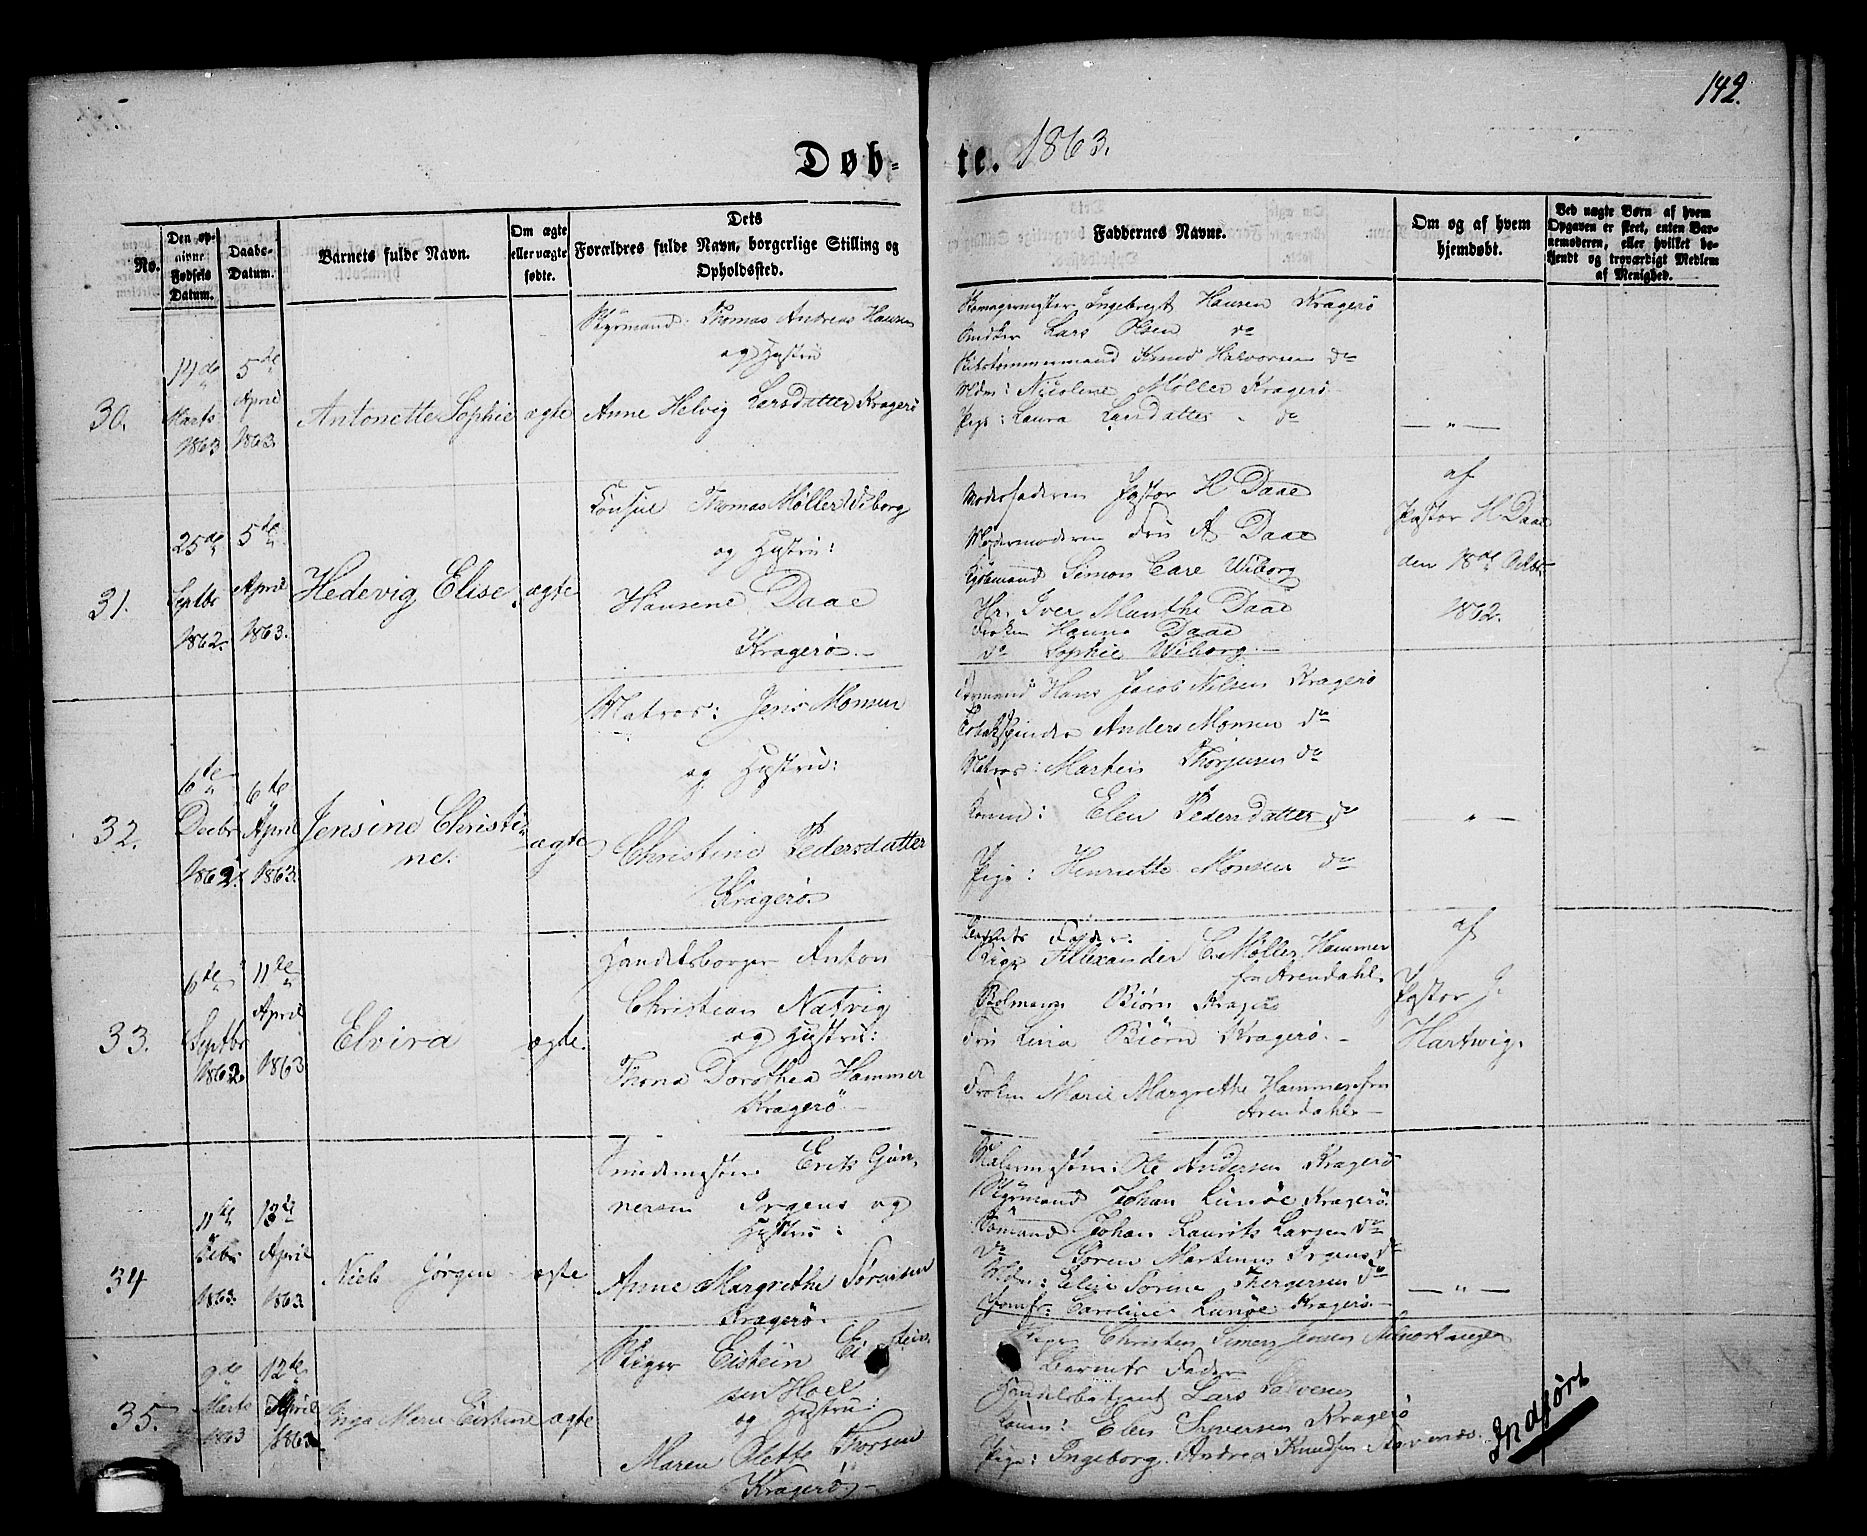 142.
Døb-
te. 1863.
No.
Den op-
givne
Fødsels
Datum.
Daabs-
Datum.
Barnets fulde Navn.
Om ægte
eller uægte
fødte.
Dets
Forældres fulde Navn, borgerlige Stilling og
Opholdssted.
Faddernes Navne.
Om og af hvem
hjemdøbt.
Ved uægte Børn af hvem
Opgaven er skeet, enten Bar-
nemoderen, eller hvilket be-
kjendt og troværdigt Medlem
af Menighed.
30.
14de
Marts
1863
5te
April
1863.
Antonette Sophie
ægte
Styrmand Thomas Andreas Hansen
og Hustru
Anne Helvig Larsdatter Kragerø
Ingebregt Hansen Kragerø
Lars Olsen do
Knud Halvorsen do
Mdm: Nicoline Møller Kragerø
Pige: Laura Larsdatter do
— " —
31.
25de
Septbr
1862.
5te
April
1863.
Hedevig Elise
ægte
Consul Thomas Møller Wiborg
og Hustru:
Hansene Daae
Kragerø.
Moderfaderen Pastor H Daae
Modermoderen Fru A Daae
Kjøbmand Simon Care Wiborg
Hr. Iver Munthe Daae
Frøken Hanna Daae
do Sophie Wiborg.
af
Pastor H. Daae
den 18de Octbr
1862.
32.
6te
Decbr
1862.
6te
April
1863.
Jensine Christi-
ne.
ægte
Matros: Jens Monsen
og Hustru:
Christine Pedersdatter
Kragerø
Hans Jacob Nilsen Kragerø
Anders Monsen do
Matros: Martin Thorjusen do
Konen: Elen Pedersdatter do
Pige: Henriette Monsen do
— " —
33.
6te
Septbr
1862.
11te
April
1863
Elvira
ægte.
Handelsborger Anton
Christian Natvig
og Hustru:
Thona Dorothea Hammer
Kragerö
Barnets Fader:
Alexander C. Møller Hammer
fra Arendahl.
Biørn Kragerø
Fru Lina Biørn Kragerø.
Frøken Marie Margrethe Hammer fra
Arendahl
af
Pastor J.
Hartwig.
34
11te
Febr
1863.
13de
April
1863.
Niels Jörgen
ægte
Smedemester Erik Gun-
nersen Irgens og
Hustru:
Anne Margrethe Sørensen
Kragerø.
Malermester: Ole Andersen Kragerø
Styrmand Johan Lunöe Kragerø.
Johan Laurits Larsen do
do Søren Martinus Irgens do
Mdm: Elise Sorine do
Jomfr: Caroline Lunöe Kragerø.
— " —
35.
9de
Marts
1863
12te
April
1863.
Inga Marie Eistine
ægte
Eistein Eistein-
sen Hoel
og Hustru:
Maren Olette Thorsen
Kragerö
Christen Jensen
Barnets Fader
Lars Halvorsen
Konen: Elen Syversen Kragerø
Pige: Ingeborg Andrea Knudsen
Indført